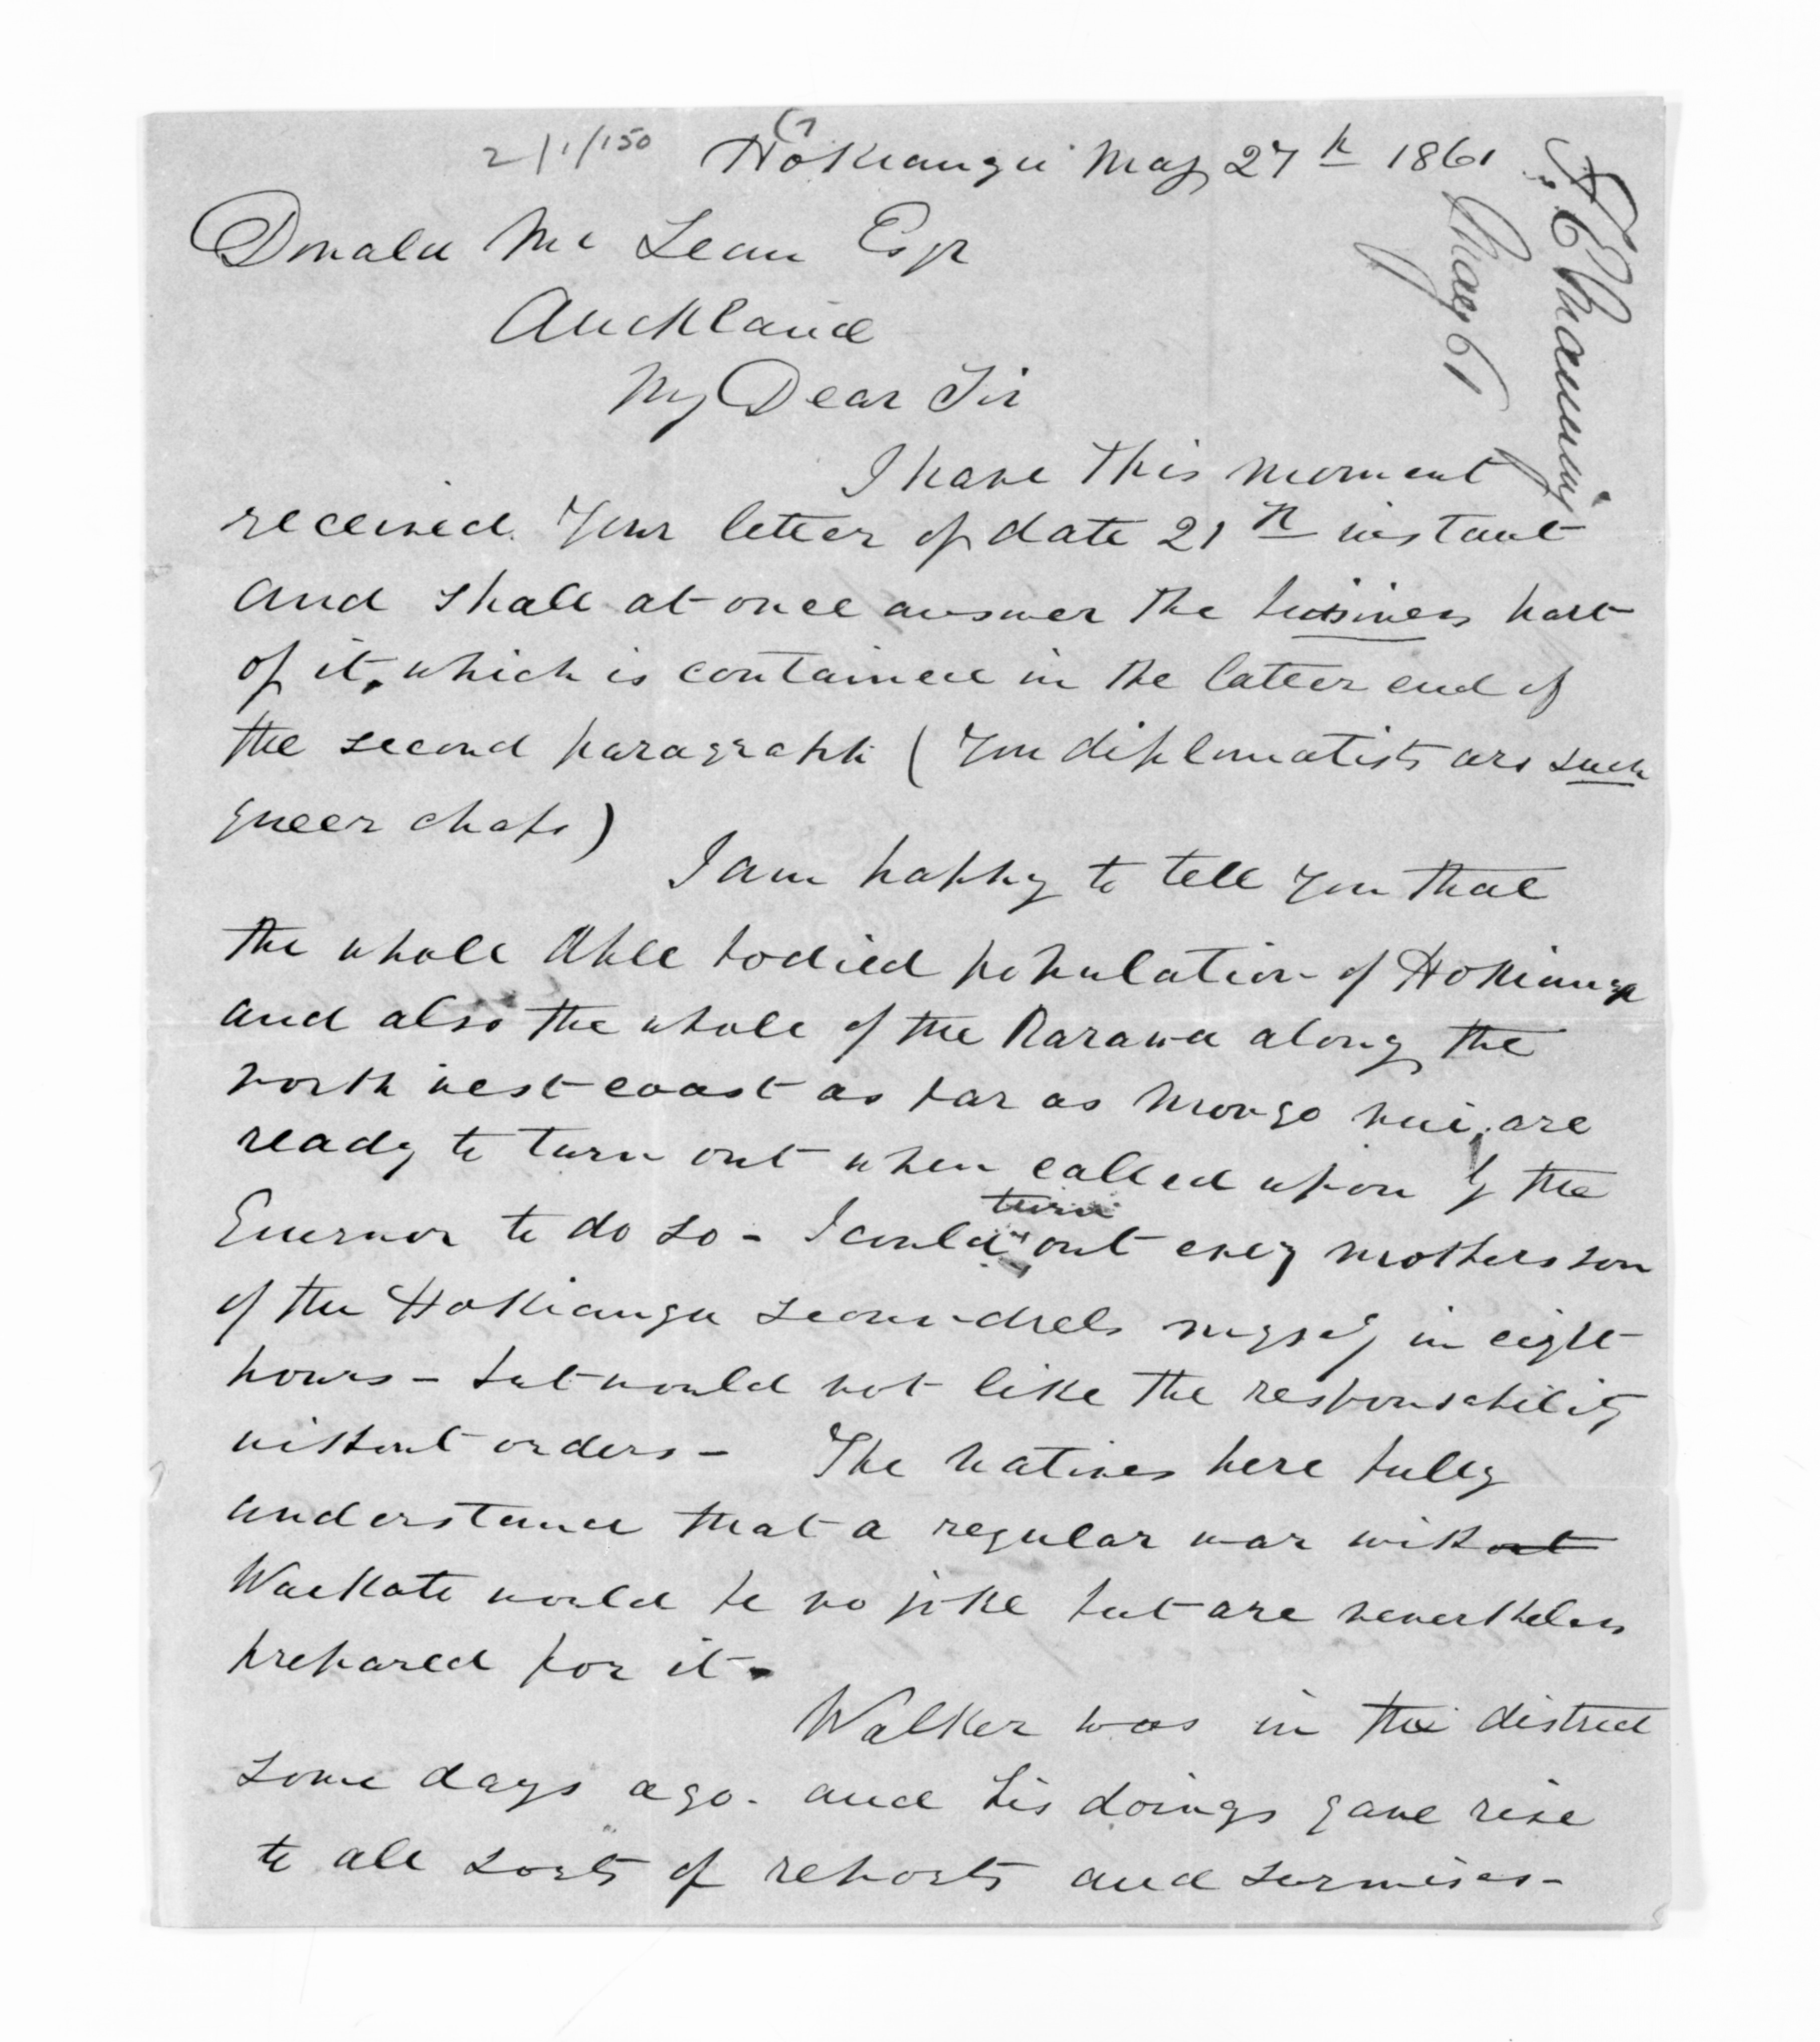 2/1/150 Hokianga May 27th 1861
F. E. Maning
May 61
Donald Mc Lean Esqr
Auckland
My Dear Sir
I have this moment
received. Your letter of date 21st instant
and shall at once answer the business part
of it, which is contained in the latter end of
the second paragraph (You diplomatists are such
queer chaps)
I am happy to tell you that
the whole able bodied population of Hokianga
and also the whole of the Rarawa along the
north west coast as far as Mongo nui, are
ready to turn out when called upon by the
Guernor to do so - I could turn out every mothers son
of the Hokianga scoundrels myself in eight
hours - but would not like the responsability
without orders - The natives here fully
understand that a regular war without
Waikato would be no joke but are nevertheless
prepared for it -
Walker was in the district
some days ago. and his doings gave rise
to all sorts of reports and surmises -